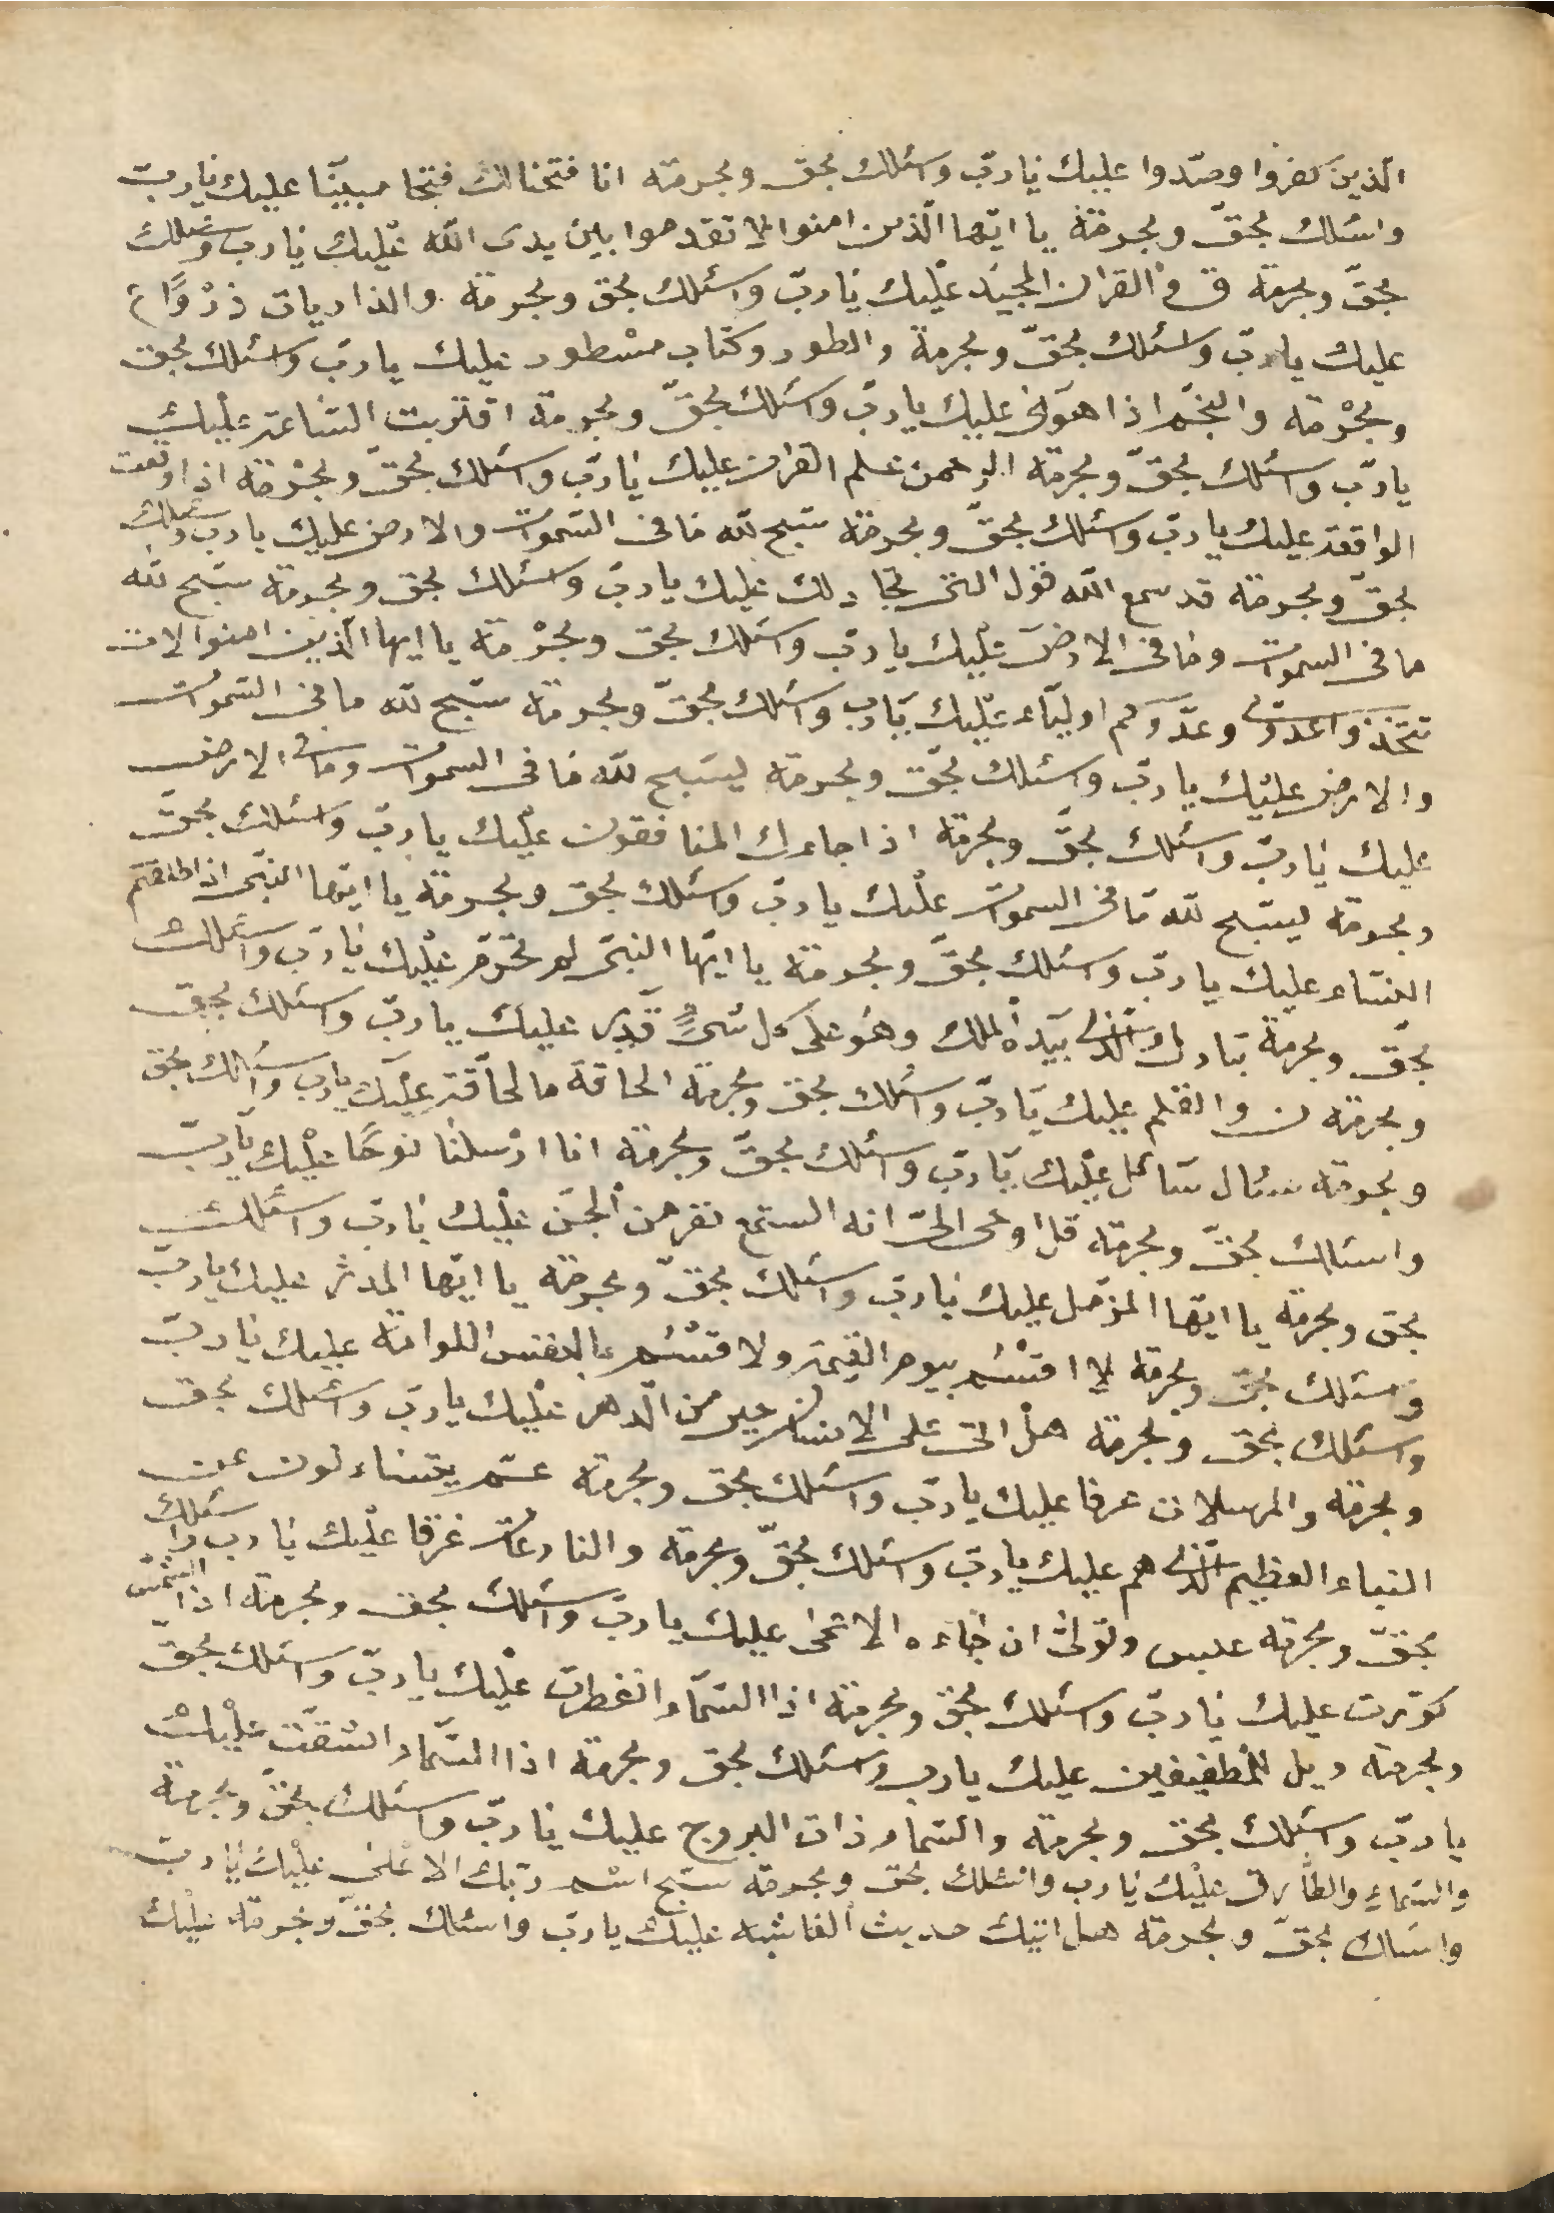 الّذين كفروا وصدّوا عليك يا ربّ واسئلك بحق وبحرمة انا فتحنا لك فتحا مبينًا عليك يا ربّ
واسئلك بحقّ وبحرمة يا ايّها الّذين امنوا لا تقدموا بين يدى اللّه عليك يا ربّ واسئلك
بحقّ وبحرمة ق والقران المجيد عليك يا ربّ واسئلك بحق وبحرمة والذاريات ذروًا
عليك يا ربّ واسئلك بحقّ وبحرمة والطور وكتاب مسْطور عليك يا ربّ واسئلك بحق
وبحرْمة والنجّم اذا هوى عليك يا ربّ واسئلك بحقّ وبحرمة اقتربت السّاعة عليك
يا ربّ واسئلك بحقّ وبحرمة الرحمن علم القران عليك يا ربّ واسئلك بحقّ وبحرْمة اذا وقعت
الواقعة عليك يا ربّ واسئلك بحقّ وبحرمة سبح للّه ما فى السّموات والارض عليك يا ربّ واسئلك
بحقّ وبحرمة قد سمع اللّه قول التى تجادلك عليك يا ربّ واسئلك بحق وبحرمة سبّح للّه
ما فى السموات وما فى الارض عليك يا ربّ واسئلك بحق وبحرْمة يا ايها الّذين امنوا لات
تتخذوا عدوى وعدّوكم اولياء عليك يا ربّ واسئلك بحقّ وبحرمة سبّح للّه ما فى السّموات
والارض عليك يا ربّ واسئلك بحقّ وبحرمة ليسبح للّه ما فى السموات وما فى الارض
عليك يا ربّ واسئلك بحقّ وبحرمة اذا جاءك المنافقون عليك يا ربّ واسئلك بحقّ
وبحرمة ليسبّح للّه ما فى السموات عليك يا ربّ واسئلك بحق وبحرمة يا ايّها النبّى اذا طلقتم
النسّاء عليك يا ربّ واسئلك بحقّ وبحرمة يا ايّها النبّى لم تحّرم عليك يا ربّ واسئلك
بحقّ وبحرمة تبارك الّذى بيده الملك وهو على كل شىءٍ قدير عليك يا ربّ واسئلك بحق
وبحرمة ن والقلم عليك يا ربّ واسئلك بحق وبحرمة الحاقة ما لحاقّة عليك يا ربّ واسئلك بحق
وبحرمة سئال سائل عليك يا ربّ واسئلك بحقّ وبحرمة انا ارسلنا نوحًا عليك يا ربّ
واسئلك بحقّ وبحرمة قل اوحى الىّ انه الستمع نفر من الجن عليك يا ربّ واسئلك
بحق وبحرمة يا ايّها المزّمل عليك يا ربّ واسئلك بحقّ وبحرمة يا ايّها المدثر عليك يا ربّ
واسئلك بحقّ وبحرمة لا اقسْم بيوم القيمة ولا قسْم بالنفس اللوامة عليك يا ربّ
واسئلك بحقّ وبحرمة هل اتى على الانسان حين من الّدهر عليك يا ربّ واسئلك بحق
وبحرمة والمرسلات عرفا عليك يا ربّ واسئلك بحق وبحرمة عمّ يتساءلون عن
النباء العظيم الّذى هم عليك يا ربّ واسئلك بحقّ وبحرمة والنازعات غرقا عليك يا ربّ واسئلك
بحقّ وبحرمة عبس وتولّى ان جاءه الاعمى عليك يا ربّ واسئلك بحق وبحرمة اذا الشمّس
كوّرت عليك يا ربّ واسئلك بحق وبحرمة اذا السّماء انفطرت عليك يا ربّ واسئلك بحقّ
وبحرمة ويل للمطففين عليك يا ربّ واسئلك بحق وبحرمة اذا السّماء انشقّت عليك
يا ربّ واسئلك بحق وبحرمة والسّماء ذات البروج عليك يا ربّ واسئلك بحقّ وبحرمة
والسّماء والطّارق عليك يا ربّ واسئلك بحق وبحرمة سبّح اسْم ربّك الاعلى عليك يا ربّ
واسئلك بحقّ وبحرمة هل اتيك حديث الغاشية عليك يا ربّ واسئلك بحقّ وبحرمة عليك